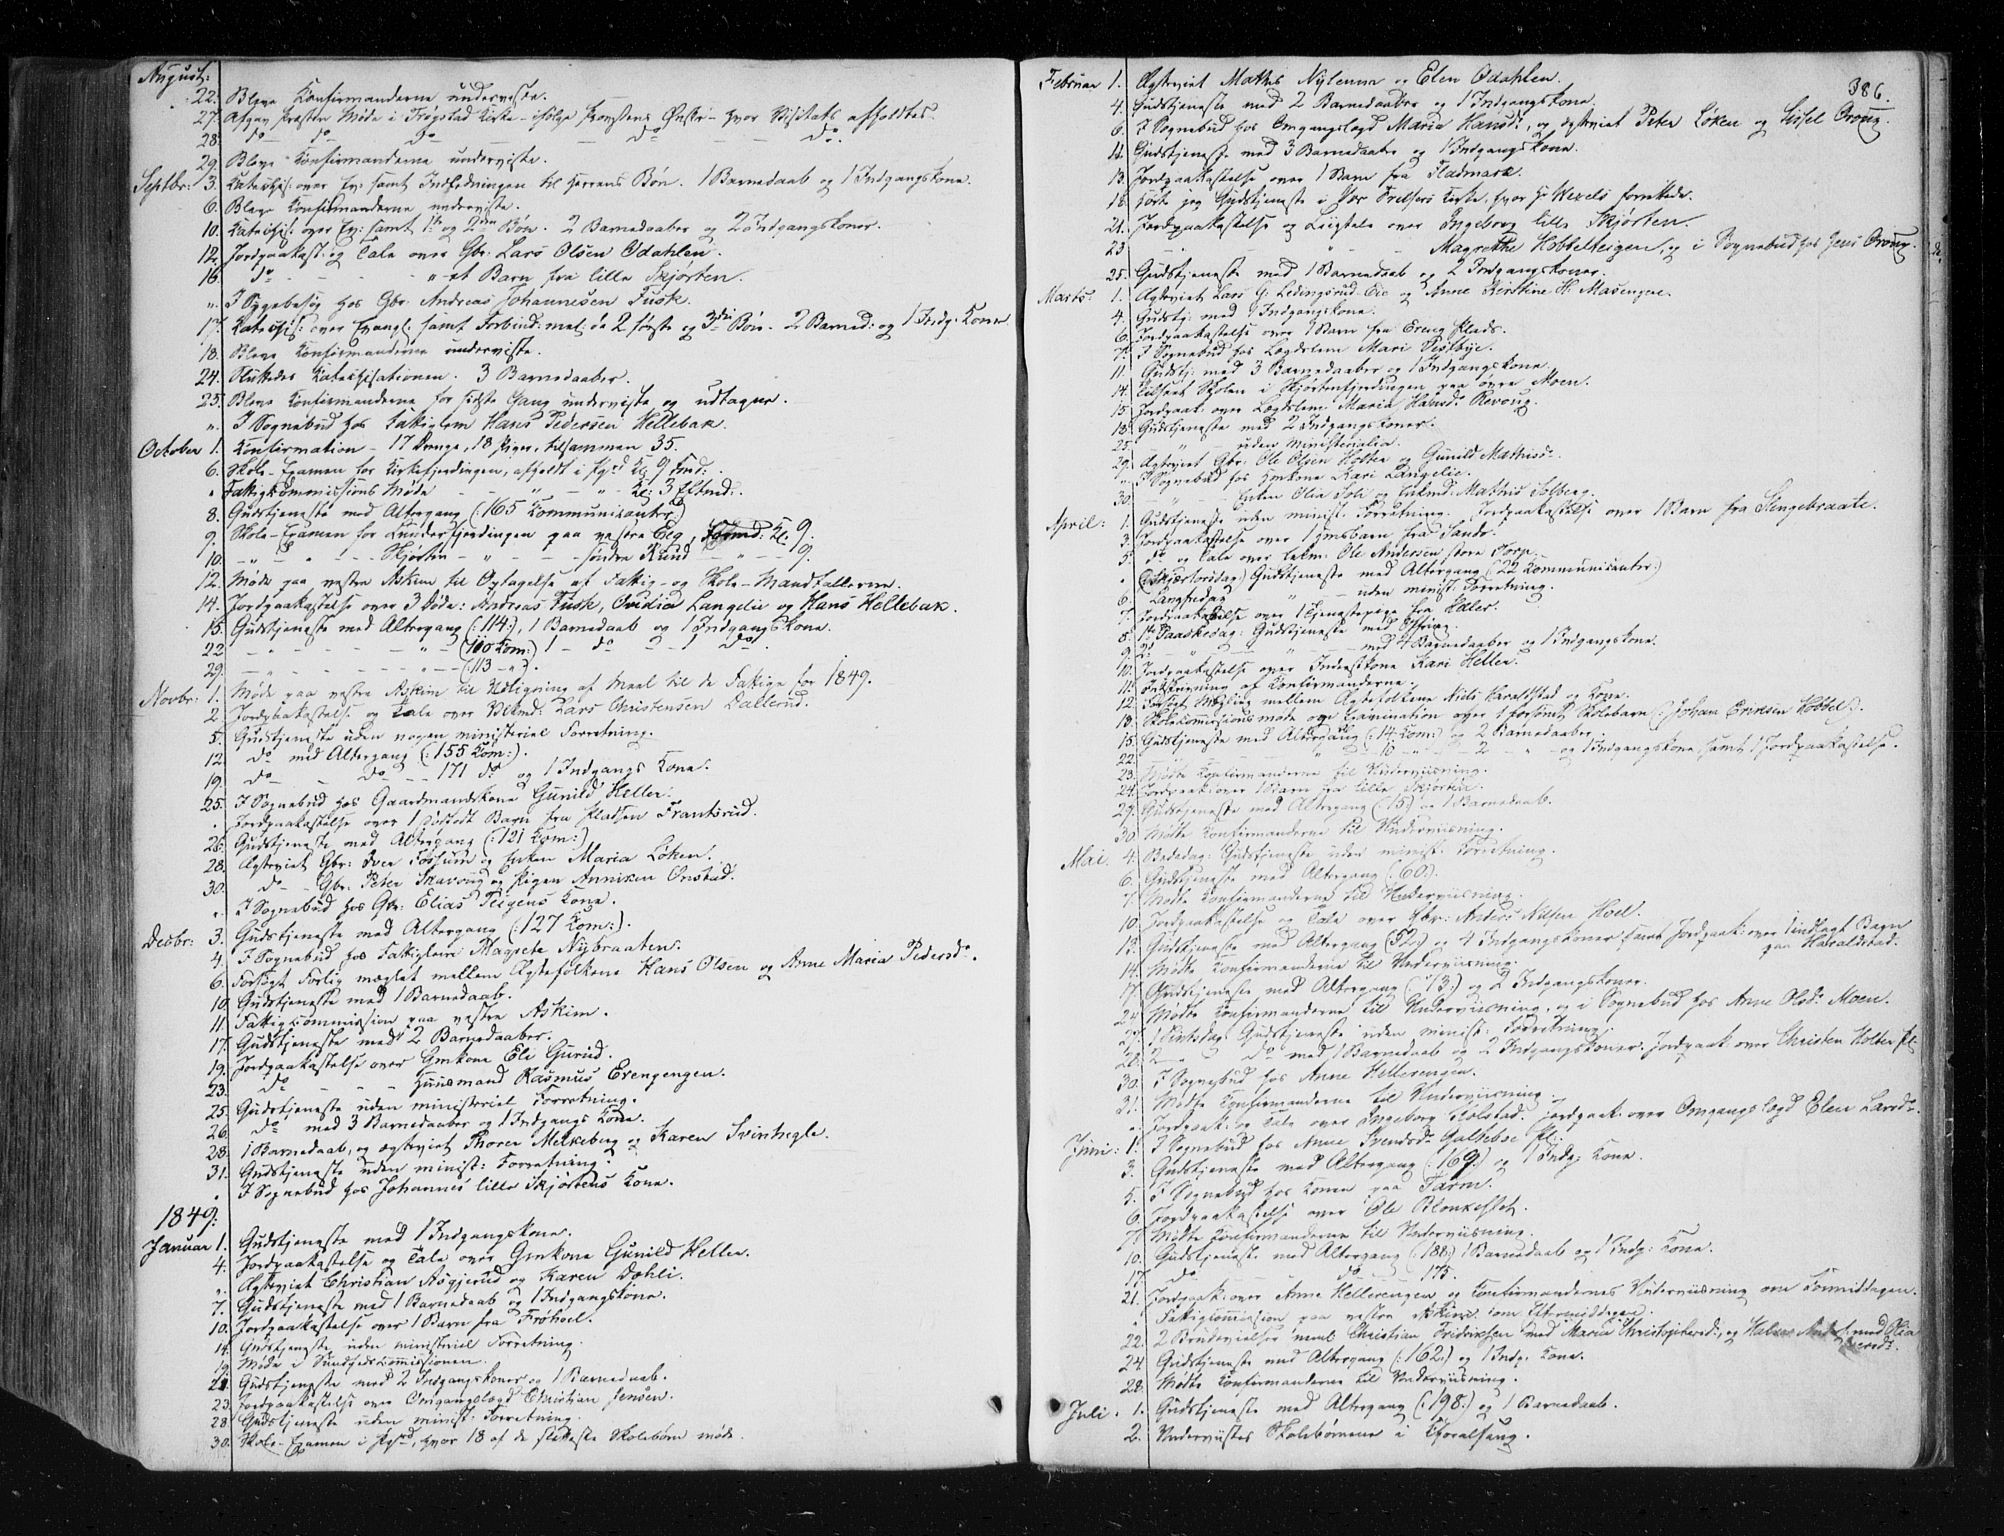 August:
22. Bleve Konfirmanderne underviste.
27. Afgav Præsten Møde i Trøgstad Kirke - ifølge Provstens Ønske - hvor Visitats afholdtes.
28. do - do - do - do - do.
29. Bleve Konfirmanderne underviste.
Septbr: 3. Katechis: over Ev: samt Indledningen til Herrens Bøn. 1 Barnedaab og 1 Indgangskone.
6. Bleve Konfirmanderne underviste.
10. Katechis: over Ev: samt 1ste og 2den Bøn. 2 Barnedaaber og 2 Indgangskoner.
12. Jordpaakast: og Tale over Gbr. Lars Olsen Odahlen.
16. do - - - " et Barn fra lille Skjørten.
". I Sygebesøg hos Gbr: Andreas Johannesen Tusk.
17. Katechis: over Evangl: samt Forbind: mel: de 2 første og 3die Bøn. 2 Barned: og 1 Indg: Kone.
18. Bleve Konfirmanderne underviste.
24. Sluttedes Katechisationen. 3 Barnedaaber.
25. Bleve Konfirmanderne for sidste Gang underviste og udtagne.
". I Sognebud hos Fattiglem Hans Pedersen Hellebak.
October 1. Konfirmation - 17 Drenge, 18 Piger, tilsammen 35.
6. Skole-Examen for Kirkefjerdingen, afholdt i Pgrd Kl. 9 Fmd:
" Fattigkommissions Møde - " - " - Kl: 3 Eftmd:.
8. Gudstjeneste med Altergang (165 Kommunikanter)
9. Skole-Examen for Lunderfjerdingen paa vestre Eeg, Kl. 9.
10. - " - " - Skjørten - " - søndre Krud " - 9.
12. Møde paa vestre Askim til Optagelse af Fattig- og Skole-Mandtallerne.
14. Jordpaakastelse over 3 Døde: Andreas Tusk, Ovidia Langelie og Hans Hellebak.
15. Gudstjeneste med Altergang (:114:), 1 Barnedaab og 1 Indgangskone.
22 - " - - - " - (100 Kom:) 1 - do - 1 do.
29. - " - - - " - (:113 - ":).
Novbr: 1. Møde paa vestre Askim til Udligning af Maal til de Fattige for 1849.
2. Jordpaakastelse og Tale over Lars Christensen Dallerud.
5. Gudstjeneste uden nogen ministeriel Forretning.
12. do med Altergang (:155 Kom:).
19. do - do - - 171 do og 1 Indgangs Kone.
25. I Sognebud hos Gaardmandskone Gunild Heller.
" Jordpaakastelse over 1 dødfødt Barn fra Pladsen Frantsrud.
26. Gudstjeneste med Altergang (:121 Kom:)
28. Ægteviet Gbr: Iver Fossum og Enken Maria Løken.
30. do - Gbr. Peter Skavoug og Pigen Anniken Onstad.
". I Sognebud hos Gbr: Elias Teigens Kone.
Decbr: 3. Gudstjeneste med Altergang (:127 Kom:).
4. I Sognebud hos Fattiglem Magrete Nybraaten.
6. Forsøgt Forlig mæglet mellem Ægtefolkene Hans Olsen og Anne Maria Pedersdr.
10. Gudstjeneste med 1 Barnedaab.
11. Fattigkommission paa vestre Askim.
17. Gudstjeneste med 2 Barnedaaber.
19. Jordpaakastelse over Gmkone Eli Gurud.
23. do - " - " Huusmand Rasmus Erengengen.
25. Gudstjeneste uden ministeriel Forretning.
26. do med 3 Barnedaaber og 1 Indgangs Kone.
28. 1 Barnedaab, og ægteviet Thorer Melkeberg og Karen Svinhegle.
31. Gudstjeneste uden minist: Forretning.
" I Sognebud hos Johannes lille Skjørtens Kone.
1849:
Januar 1. Gudstjeneste med 1 Indgangskone.
4. Jordpaakastelse og Tale over Gmkone Gunild Heller.
". Ægteviet Christian Asgjerud og Karen Dahli.
7. Gudstjeneste med 1 Barnedaab og 1 Indgangskone.
10. Jordpaakastelse over 1 Barn fra Frøhoel.
14. Gudstjeneste uden ministeriel Forretning.
19. Møde i Sundhedskommissionen.
21. Gudstjeneste med 2 Indgangskoner og 1 Barnedaab.
23. Jordpaakastelse over Omgangslægd Christian Jensen.
28. Gudstjeneste uden minist: Forretning.
30. Skole-Examen i Pgrd, hvor 18 af de Skolebørn mødte.
386.
Februar 1. Ægteviet Mathis Nylenna og Elen Odahlen.
4. Gudstjeneste med 2 Barnedaaber og 1 Indgangskone.
6. I Sognebud hos Omgangslægd Maria Hansdr, og ægteviet Peter Løken og Sissel Oroug.
11. Gudstjeneste med 3 Barnedaaber og 1 Indgangskone.
13. Jordpaakastelse over 1 Barn fra Fladmark.
18. hørte jeg Gudstjeneste i Vor Frelsers Kirke, hvor Hr Wexels forrettede.
21. Jordpaakastelse og Liigtale over Ingeborg lille Skjørten.
23 - - " - Magrethe Hobbelteigen, og i Sognebud hos Jens Oroug.
25. Gudstjeneste med 1 Barnedaab og 2 Indgangskoner.
Marts. 1. Ægteviet Lars G. Ledingsrud-Eie og Anne Kirstine H. Masengene.
4. Gudstj: med 1 Indgangskone.
6. Jordpaakastelse over 1 Barn fra Ereng Plads.
7. I Sognebud hos Lægdslem Mari Vestbye.
11. Gudstj: med 3 Barnedaaber og 1 Indgangskone.
14. Tilseet Skolen i Skjørtenfjerdingen paa øvre Moen.
15. Jordpaak: over Lægdslem Maria Hansdr Revoug.
18. Gudstjeneste med 2 Indgangskoner.
25. " - uden Ministerialia.
29. Ægteviet Gbr: Ole Olsen Holter og Gunild Mathisdr.
". I Sognebud hos Gmkone Kari Langelie.
30. - " - Enken Olia Solb og Enkmd: Mathis Solberg.
April: 1. Gudstjeneste uden minist: Forretning. Jordpaakastelse over 1 Barn fra Slengebraate.
3. Jordpaakastelse over 1 Barn fra Sande.
5. do og Tale over Enkm: Ole Andersen store Torp.
" (Skjærtorsdag) Gudstjeneste med Altergang (:22 Kommunikanter:)
6. Langfredag " - uden minist: Forretning.
7. Jordpaakastelse over 1 Tjenestepige fra Heller.
8. 1ste Paaskedag: Gudstjeneste med Offring.
9. 2. - " - " - med 4 Barnedaaber og 1 Indgangskone.
10. Jordpaakastelse over Inderstkone Kari Heller.
11. Indskrivning af Konfirmanderne.
12. Forsøgt Mægling mellem Ægtefolkene Niels Haraldstad og Kone.
13. Skolekommissions Møde og Examination over 1 forsømt Skolebarn (:Johan Eriksen Hobbel:).
15. Gudstjeneste med Altergang (:14 Kom:) og 2 Barnedaaber.
22. - " - " 16 " - 2 " - og 1 Indgangskone samt 1 Jordpaakastelse.
23. Mødte Konfirmanderne til Underviisning.
24. Jordpaak: over 1 Barn fra lille Skjørten.
29. Gudstjeneste med Altergang (:15:) og 1 Barnedaab.
30. Mødte Konfirmanderne til Underviisning.
Mai. 4. Bededag: Gudstjeneste uden minist: Forretning.
6. Gudstjeneste med Altergang (:60:).
7. Mødte Konfirmanderne til Underviisning.
10. Jordpaakastelse og Tale over Gbr: Anders Nilsen Hoel.
13. Gudstjeneste med Altergang (:52:) og 4 Indgangskoner samt Jordpaak: over 1 indlagt Barn
paa Haraldstad.
14. Mødte Konfirmanderne til Underviisning.
17. Gudstjeneste med Altergang (:73:) og 2 Indgangskoner.
24. Mødte Konfirmanderne til Underviisning, og i Sognebud hos Anne Olsdr Moen.
27. 1 Pintsdag. Gudstjeneste uden minist: Forretning.
28. 2 - do med 1 Barnedaab og 2 Indgangskoner. Jordpaak: over Christen Holter Pl:
30. I Sognebud hos Anne Hellerengen.
31. Mødte Konfirmanderne til Underviisning.
" Jordpaak: og Tale over Ingeborg Solstad. Jordpaak: over Omgangslægd Elen Larsdr.
Juni: 1. I Sognebud hos Anne Svendsdr Galteboe Pl:.
3. Gudstjeneste med Altergang (:169:) og 1 Indg: Kone.
5. I Sognebud hos Konen paa Tarm.
6. Jordpaakastelse over Ole Blonkeslet.
7. Mødte Konfirmanderne til Underviisning.
10. Gudstjeneste med Altergang (:188:) 1 Barnedaab og 1 Indg: Kone.
17. do - do - 175.
21. Jordpaak: over Anne Hellerengen og Konfirmandernes Underviisning om Formiddagen.
" Fattigkommission paa vestre Askim om Eftermiddagen.
22. 2 Brudevielser neml: Christian Fridriksen med Maria Christophersdr, og Halvor med Olia
24. Gudstjeneste med Altergang (:162:) og 1 Indg: Kone.
28. Mødte Konfirmanderne til Underviisning.
Juli. 1. Gudstjeneste med Altergang (:198:) og 1 Barnedaab.
2. Underviistes Skolebørnene i Choralsang.